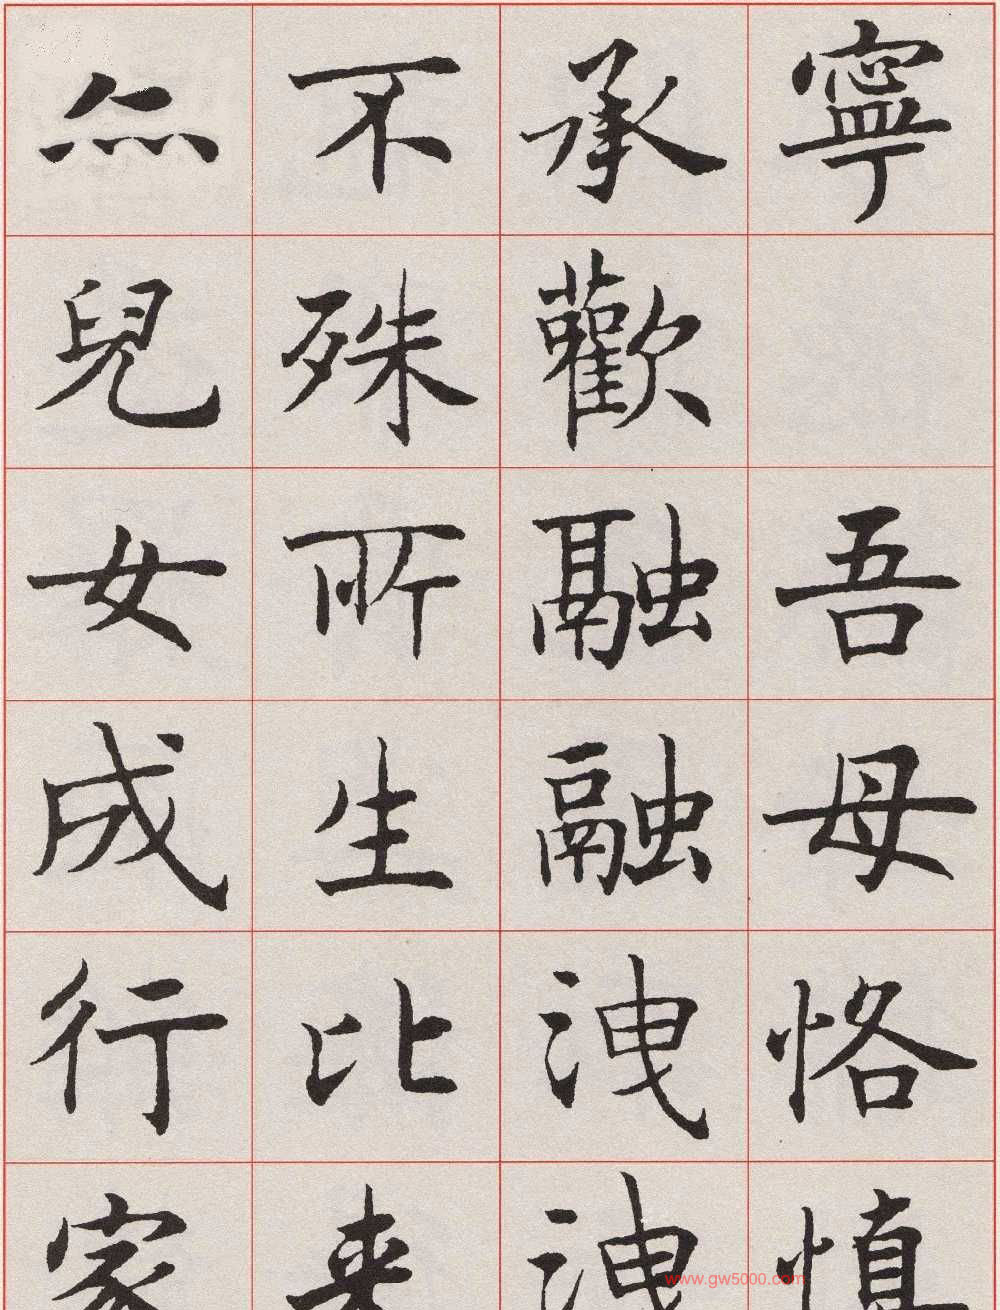 寧 吾母恪慎
承歡融融洩洩
不殊所生比来
兒女成行家
www.gw5000.com